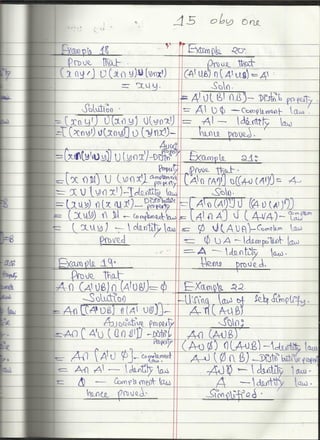 15 oby one
Example 18
Prove that
(x∩y') U (x∩y) U (y∩x')
= x∪y.
Solution
= (x∩y') U (x∩y) U (y∩x')
= [(x∩y') U (x∩y)] U (y∩x')
property
U (y∩x') - Distri
Property
U (y∩x') complement property
= x U (y∩x') - Identity law
= (x∪y) ∩ (x∪x') Distributive property
= (x∪y) ∩ - complement law
= (x∪y) - Identity law
Proved
Example 19:
Prove that
A∩ (A'∪B) ∩ (A'∪B') = Ø
Solution
= A∩ [(A'∪B) ∩ (A'∪B')] -
Associative property
= A∩ (A' U (B∩B')) - Distri-
property
= A∩ [A' U Ø] - complement law
= A∩ A' - Identity law
= Ø - Complement law
hence proved.
Example 20:
prove that
(A'∪B) ∩ (A'∪B') = A'
Soln.
= A' U (B'∩B) - Distrib property
= A' U Ø - Complement law
= A' - Identity law
hence proved.
Example 21:
Prove that.
[A∩(A∩A')'] = A.
Soln.
= Ø U (A∪A) - Complem law
= Ø U A - Idempotent law
= A - Identity law.
Hence proved.
Example 22
- Using law of sets simplify.
A ∩ (A∪B)
Soln:
A∩ (A∪B)
(A∪Ø) ∩ (A∪B) - Identity law
A∪ (Ø∩B) - Distributive property
A∪Ø - Identity law.
A - Identity law.
Simplified.